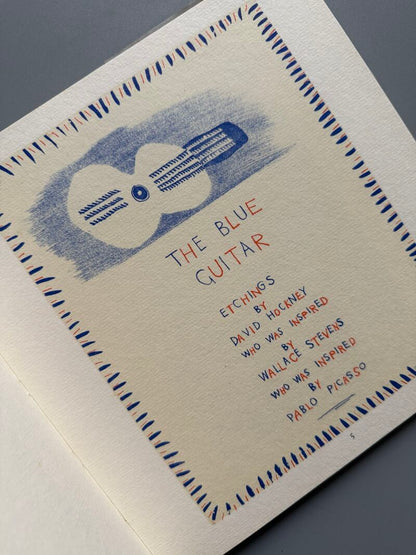 THE BLUE
GUITAR
ETCHINGS
BY
DAVID HOCKNEY
WHO WAS INSPIRED
BY
WALLACE STEVENS
WHO WAS INSPIRED
BY
PABLO PICASSO
5